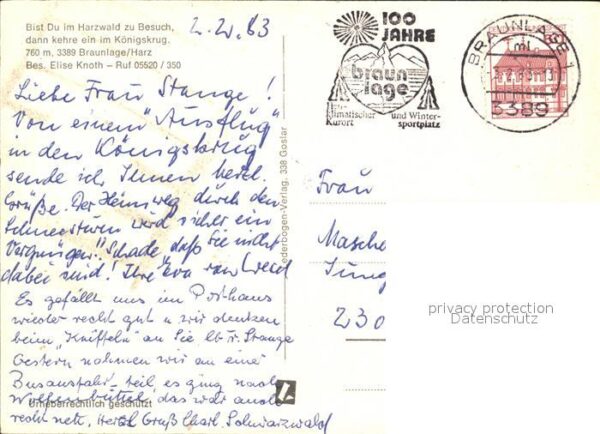 Bist Du im Harzwald zu Besuch,
dann kehre ein im Königskrug.
760 m, 3389 Braunlage/Harz
Bes. Elise Knoth - Ruf 05520 / 350
2.2.83
Liebe Frau Stange!
Von einem "Ausflug"
in den Königskrug
sende ich Ihnen herzl.
Grüße. Der Heimweg durch den
Schneesturm wird sicher ein
Vergnügen. Schade, daß Sie nicht
dabei sind! Ihre Eva van
Es gefällt uns im Posthaus
wieder recht gut u. wir denken
beim "Kniffeln" an Sie, lb. Fr. Stange
Gestern nahmen wir an eine
Busausfahrt teil, es ging nach
Wolfenbüttel, das war auch
recht nett. Herzl. Gruß Charl. Schwarzwald
Urheberrechtlich geschützt
ederbogen-Verlag, 338 Goslar
100
JAHRE
braun
lage
heilklimatischer
Kurort
und Winter-
sportplatz
BRAUNLAGE 1
ml
3389
Frau
Masche
Jung
230
privacy protection
Datenschutz